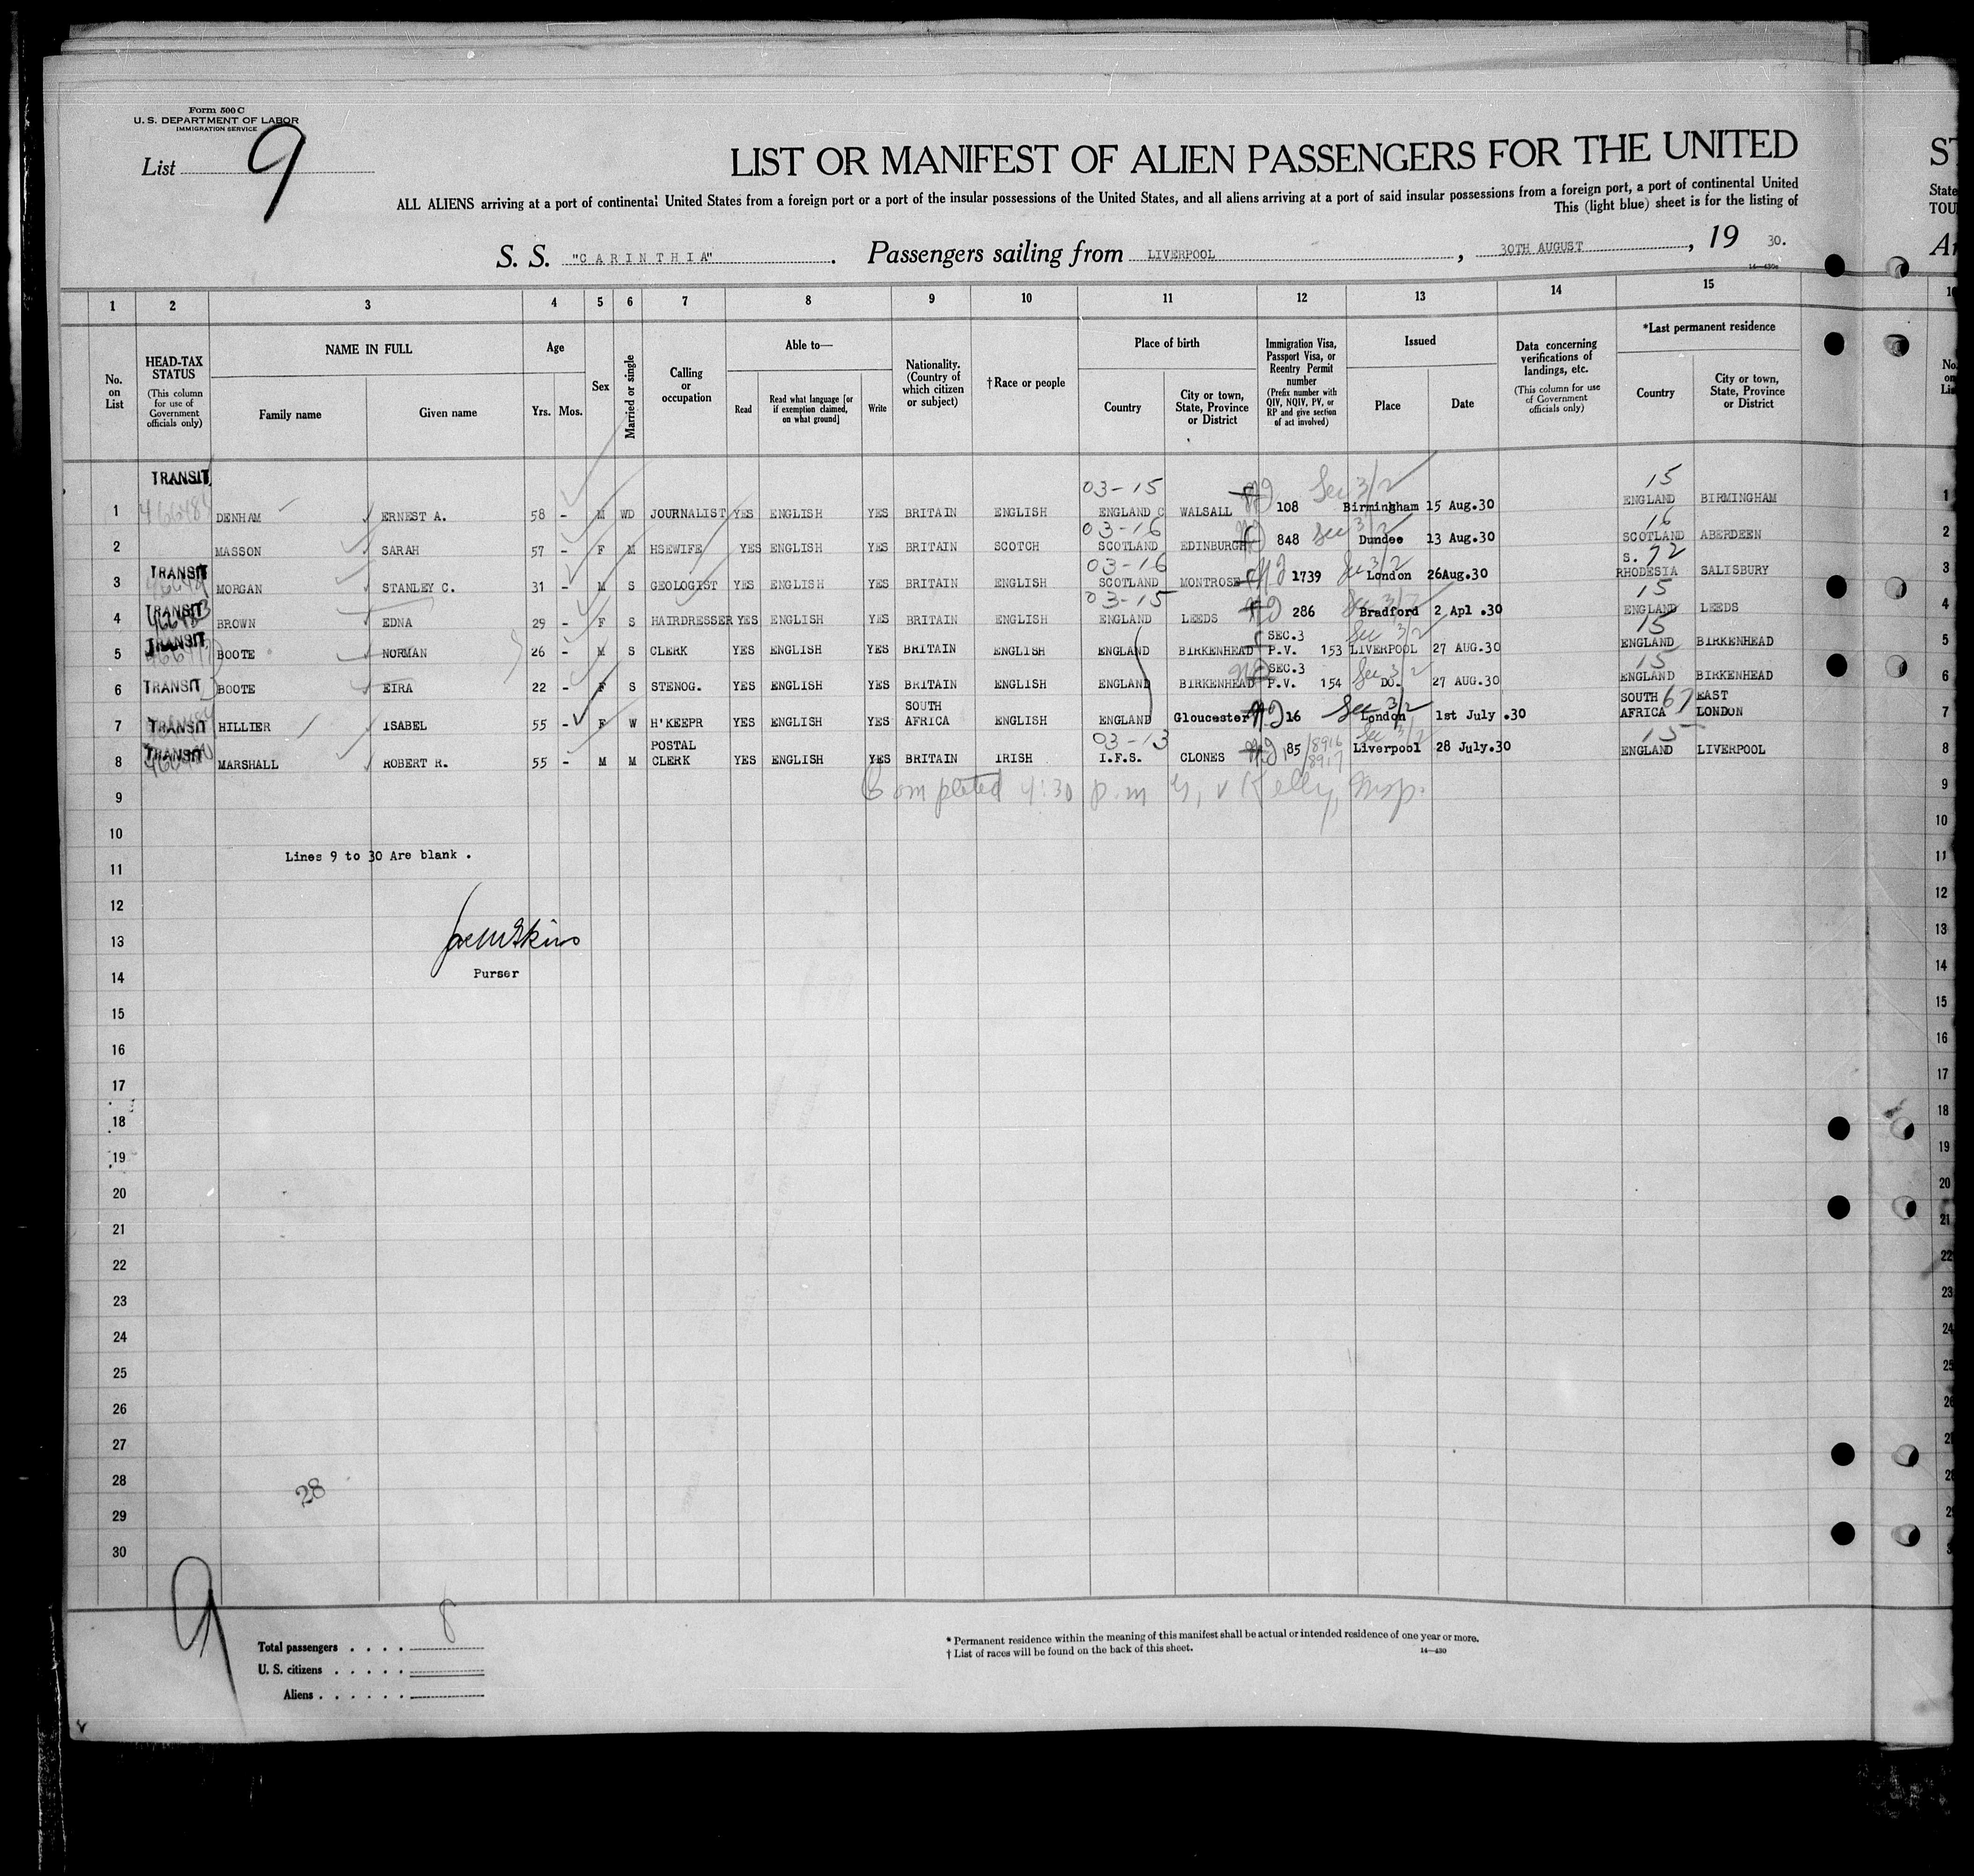 Form 500 C
U. S. DEPARTMENT OF LABOR
IMMIGRATION SERVICE
List 9
LIST OR MANIFEST OF ALIEN PASSENGERS FOR THE UNITED
ALL ALIENS arriving at a port of continental United States from a foreign port or a port of the insular possessions of the United States, and all aliens arriving at a port of said insular possessions from a foreign port, a port of continental United
This (light blue) sheet is for the listing of
State
TOU
S. S. "CARINTHIA". Passengers sailing from LIVERPOOL, 30TH AUGUST, 19 30.
1 2 3 4 5 6 7 8 9 10 11 12 13 14 15
No. on List
HEAD-TAX STATUS (This column for use of Government officials only)
NAME IN FULL Family name Given name
Age Yrs. Mos.
Sex
Married or single
Calling or occupation
Able to— Read Read what language [or if exemption claimed, on what ground] Write
Nationality. (Country of which citizen or subject)
†Race or people
Place of birth Country City or town, State, Province or District
Immigration Visa, Passport Visa, or Reentry Permit number (Prefix number with QIV, NQIV, PV, or RP and give section of act involved)
Issued Place Date
Data concerning verifications of landings, etc. (This column for use of Government officials only)
*Last permanent residence Country City or town, State, Province or District
TRANSIT 03-15 Sec 3/2 15
1 DENHAM ERNEST A. 58 - M WD JOURNALIST YES ENGLISH YES BRITAIN ENGLISH ENGLAND WALSALL 108 Birmingham 15 Aug.30 ENGLAND BIRMINGHAM 1
03-16 Sec 3/2 16
2 MASSON SARAH 57 - F M HSEWIFE YES ENGLISH YES BRITAIN SCOTCH SCOTLAND EDINBURGH 848 Dundee 13 Aug.30 SCOTLAND ABERDEEN 2
TRANSIT 03-16 Sec 3/2 72
3 MORGAN STANLEY C. 31 - M S GEOLOGIST YES ENGLISH YES BRITAIN ENGLISH SCOTLAND MONTROSE 1739 London 26Aug.30 S. RHODESIA SALISBURY 3
TRANSIT 03-15 Sec 3/2 15
4 BROWN EDNA 29 - F S HAIRDRESSER YES ENGLISH YES BRITAIN ENGLISH ENGLAND LEEDS 286 Bradford 2 Apl .30 ENGLAND LEEDS 4
TRANSIT Sec 3/2 15
5 BOOTE NORMAN 26 - M S CLERK YES ENGLISH YES BRITAIN ENGLISH ENGLAND BIRKENHEAD SEC.3 P.V. 153 LIVERPOOL 27 AUG.30 ENGLAND BIRKENHEAD 5
Sec 3/2 15
6 TRANSIT BOOTE EIRA 22 - F S STENOG. YES ENGLISH YES BRITAIN ENGLISH ENGLAND BIRKENHEAD SEC.3 P.V. 154 DO. 27 AUG.30 ENGLAND BIRKENHEAD 6
Sec 3/2 67
7 TRANSIT HILLIER ISABEL 55 - F W H'KEEPR YES ENGLISH YES SOUTH AFRICA ENGLISH ENGLAND Gloucester 16 London 1st July .30 SOUTH AFRICA EAST LONDON 7
TRANSIT 03-13 Sec 3/2 15
8 MARSHALL ROBERT R. 55 - M M POSTAL CLERK YES ENGLISH YES BRITAIN IRISH I.F.S. CLONES 85 8916 8917 Liverpool 28 July.30 ENGLAND LIVERPOOL 8
9 Completed 4:30 p.m Kelly, Insp. 9
10 10
Lines 9 to 30 Are blank .
11 11
12 12
13 13
Purser
14 14
15 15
16 16
17 17
18 18
19 19
20 20
21 21
22 22
23 23
24 24
25 25
26 26
27
28
28
29
30
9
Total passengers . . . . 8
U. S. citizens . . . . .
Aliens . . . . . .
* Permanent residence within the meaning of this manifest shall be actual or intended residence of one year or more.
† List of races will be found on the back of this sheet.
14—430